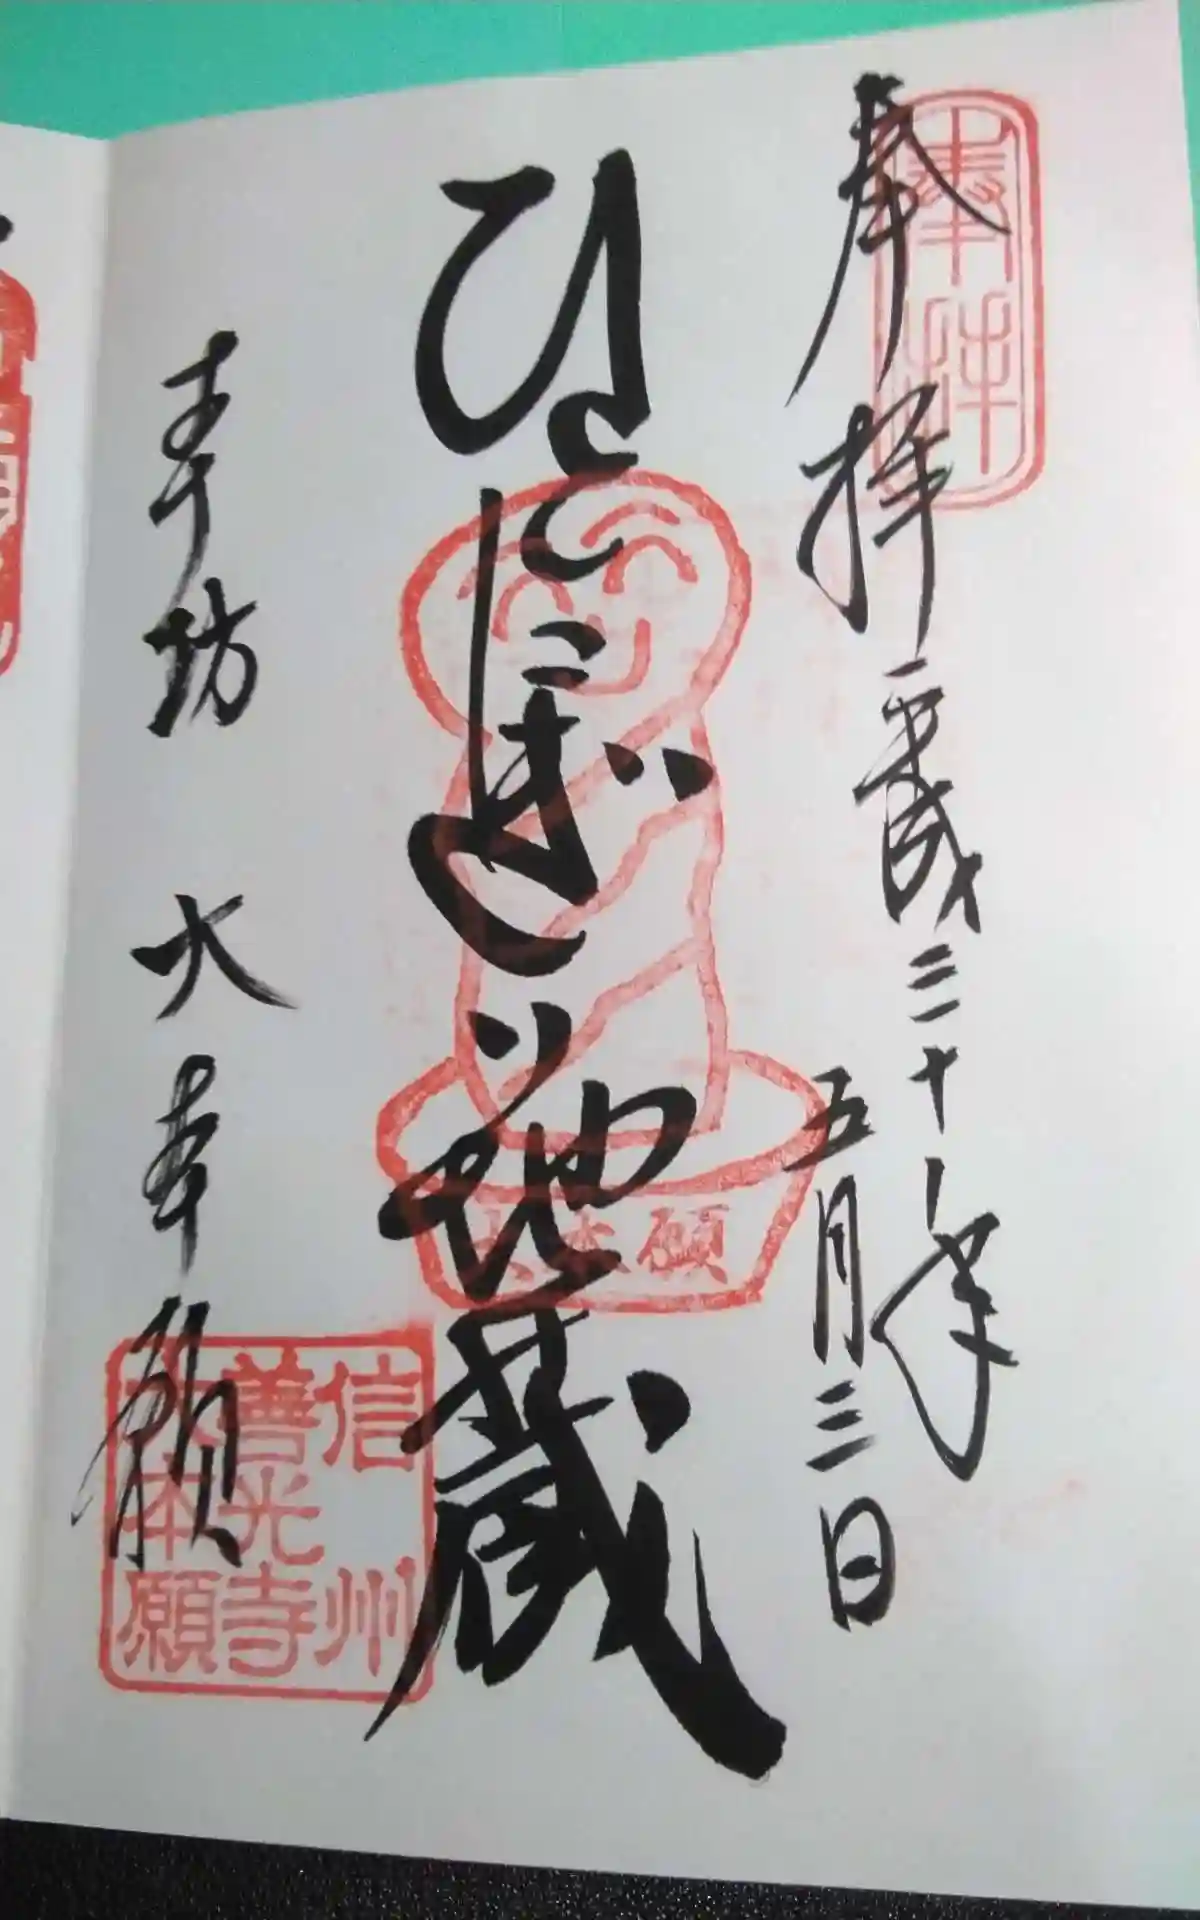 奉拝
奉拝 平成三十年
五月三日
ひとにぎり地蔵
大本願
本坊 大本願
信州
善光寺
大本願